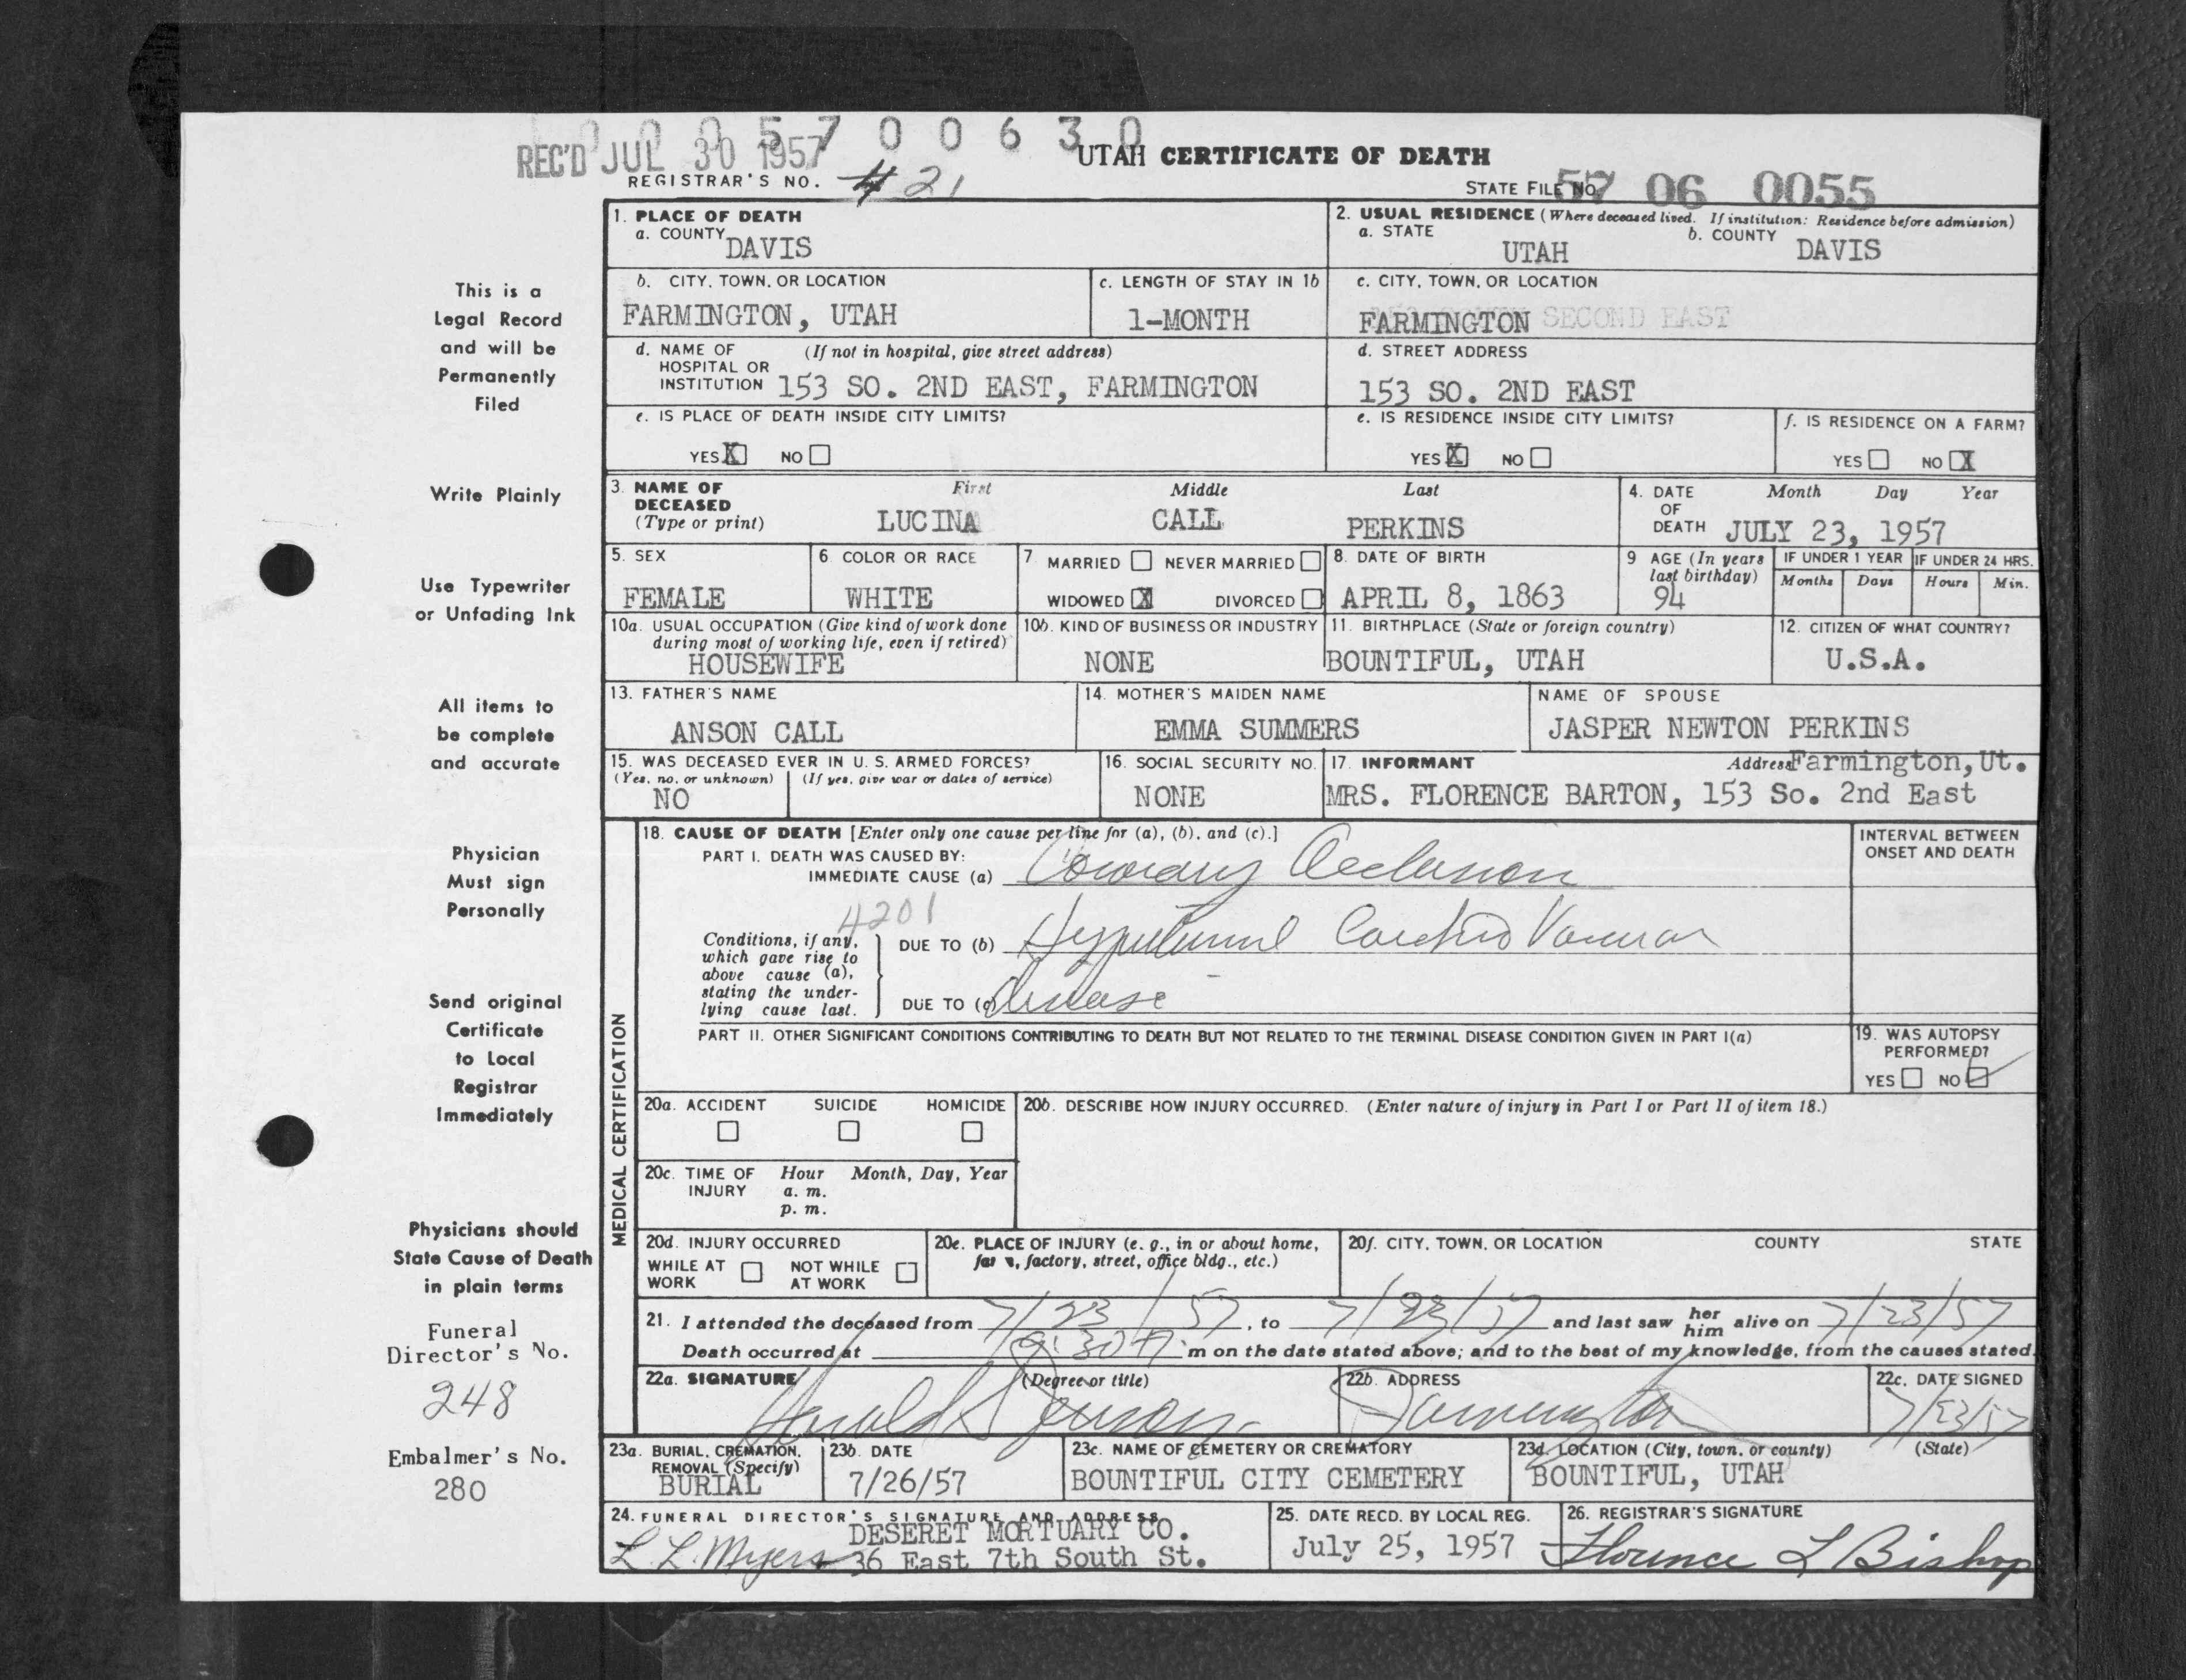 0 0 0 5 7 0 0 6 3 0
REC'D JUL 30 1957
UTAH CERTIFICATE OF DEATH
REGISTRAR'S NO. # 21
STATE FILE NO. 57 06 0055
This is a
Legal Record
and will be
Permanently
Filed
Write Plainly
Use Typewriter
or Unfading Ink
All items to
be complete
and accurate
Physician
Must sign
Personally
Send original
Certificate
to Local
Registrar
Immediately
Physicians should
State Cause of Death
in plain terms
Funeral
Director's No.
248
Embalmer's No.
280
1. PLACE OF DEATH
a. COUNTY DAVIS
2. USUAL RESIDENCE (Where deceased lived. If institution: Residence before admission)
a. STATE UTAH b. COUNTY DAVIS
b. CITY, TOWN, OR LOCATION
FARMINGTON, UTAH
c. LENGTH OF STAY IN 1b
1-MONTH
c. CITY, TOWN, OR LOCATION
FARMINGTON SECOND EAST
d. NAME OF (If not in hospital, give street address)
HOSPITAL OR
INSTITUTION 153 SO. 2ND EAST, FARMINGTON
d. STREET ADDRESS
153 SO. 2ND EAST
e. IS PLACE OF DEATH INSIDE CITY LIMITS?
YES X NO
e. IS RESIDENCE INSIDE CITY LIMITS?
YES X NO
f. IS RESIDENCE ON A FARM?
YES NO X
3. NAME OF DECEASED (Type or print)
First Middle Last
LUCINA CALL PERKINS
4. DATE OF DEATH Month Day Year
JULY 23, 1957
5. SEX
FEMALE
6 COLOR OR RACE
WHITE
7 MARRIED NEVER MARRIED
WIDOWED X DIVORCED
8. DATE OF BIRTH
APRIL 8, 1863
9 AGE (In years last birthday)
94
IF UNDER 1 YEAR IF UNDER 24 HRS.
Months Days Hours Min.
10a. USUAL OCCUPATION (Give kind of work done
during most of working life, even if retired)
HOUSEWIFE
10b. KIND OF BUSINESS OR INDUSTRY
NONE
11. BIRTHPLACE (State or foreign country)
BOUNTIFUL, UTAH
12. CITIZEN OF WHAT COUNTRY?
U.S.A.
13. FATHER'S NAME
ANSON CALL
14. MOTHER'S MAIDEN NAME
EMMA SUMMERS
NAME OF SPOUSE
JASPER NEWTON PERKINS
15. WAS DECEASED EVER IN U. S. ARMED FORCES?
(Yes, no, or unknown) (If yes, give war or dates of service)
NO
16. SOCIAL SECURITY NO.
NONE
17. INFORMANT Address Farmington, Ut.
MRS. FLORENCE BARTON, 153 So. 2nd East
MEDICAL CERTIFICATION
18. CAUSE OF DEATH [Enter only one cause per line for (a), (b), and (c).]
PART I. DEATH WAS CAUSED BY:
IMMEDIATE CAUSE (a) Coronary Occlusion
INTERVAL BETWEEN
ONSET AND DEATH
4201
Conditions, if any,
which gave rise to
above cause (a),
stating the under-
lying cause last.
DUE TO (b) Hypertensive Cardio Vascular
DUE TO (c) Disease
PART II. OTHER SIGNIFICANT CONDITIONS CONTRIBUTING TO DEATH BUT NOT RELATED TO THE TERMINAL DISEASE CONDITION GIVEN IN PART I(a)
19. WAS AUTOPSY
PERFORMED?
YES NO ✓
20a. ACCIDENT SUICIDE HOMICIDE
20b. DESCRIBE HOW INJURY OCCURRED. (Enter nature of injury in Part I or Part II of item 18.)
20c. TIME OF INJURY Hour Month, Day, Year
a. m.
p. m.
20d. INJURY OCCURRED
WHILE AT WORK NOT WHILE AT WORK
20e. PLACE OF INJURY (e. g., in or about home,
farm, factory, street, office bldg., etc.)
20f. CITY, TOWN, OR LOCATION COUNTY STATE
21. I attended the deceased from 7/23/57, to 7/23/57 and last saw her him alive on 7/23/57
Death occurred at 9:30 m on the date stated above; and to the best of my knowledge, from the causes stated.
22a. SIGNATURE (Degree or title)
Harold Jenson
22b. ADDRESS
Farmington
22c. DATE SIGNED
7/23/57
23a. BURIAL, CREMATION,
REMOVAL (Specify)
BURIAL
23b. DATE
7/26/57
23c. NAME OF CEMETERY OR CREMATORY
BOUNTIFUL CITY CEMETERY
23d. LOCATION (City, town, or county) (State)
BOUNTIFUL, UTAH
24. FUNERAL DIRECTOR'S SIGNATURE AND ADDRESS
L. L. Myers DESERET MORTUARY CO.
36 East 7th South St.
25. DATE RECD. BY LOCAL REG.
July 25, 1957
26. REGISTRAR'S SIGNATURE
Florence L Bishop